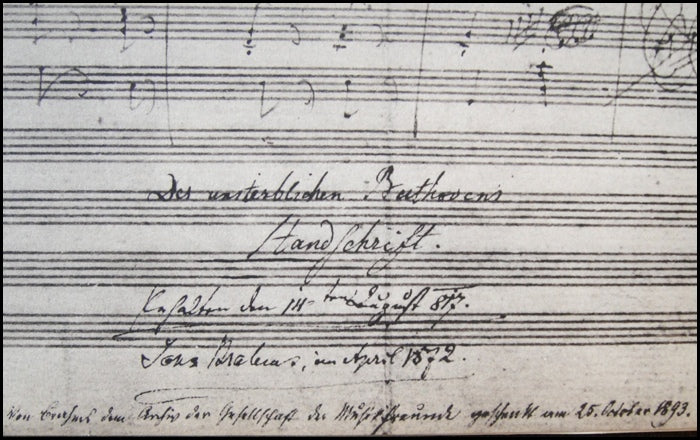 Des unsterblichen Beethovens
Handschrift.
Erhalten den 14-ten August 817.
Johs Brahms, im April 1872.
Von Brahms dem Archiv der Gesellschaft der Musikfreunde geschenkt am 25. October 1893.